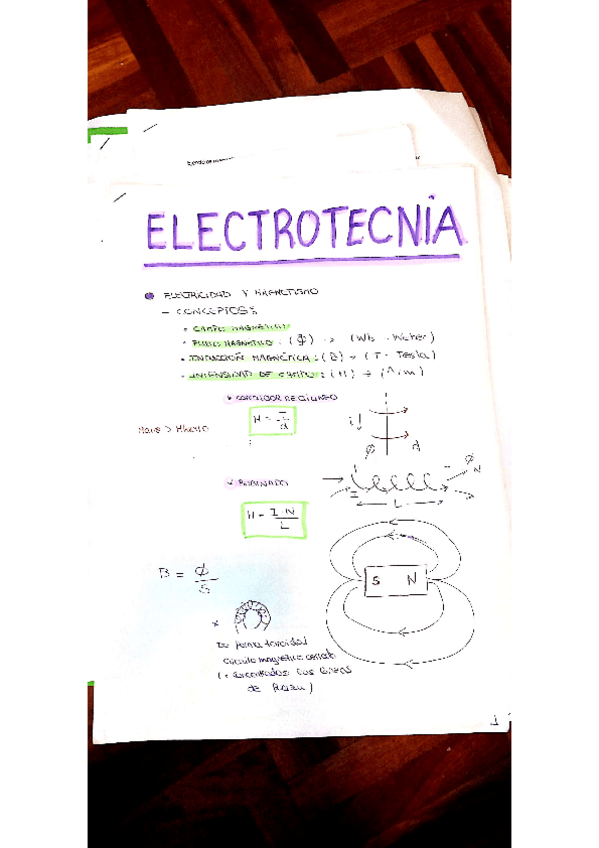 ELECTROTECNÍA
ELECTRICIDAD Y MAGNETISMO
- CONCEPTOS
• CAMPO MAGNÉTICO
• FLUJO MAGNÉTICO : (Φ) → (Wb - Weber)
• INDUCCIÓN MAGNÉTICA : (B) → (T - Tesla)
• INTENSIDAD DE CAMPO : (H) → (A/m)
CONDUCTOR RECTILÍNEO
H = I/d
i
Φ d
Φ
N
I
L
H = I·N/L
B = Φ/S
S N
* De forma toroidal
circuito magnético cerrado
(= las líneas
de)
1